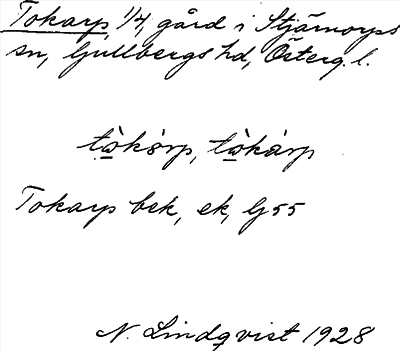 Tokarp, 1/4, gård i Stjärnorps
sn, Gullbergs hd, Österg. l.
tòkàrp, tòkàrp
Tokarp bek, ek, G 55
N. Lindqvist 1928